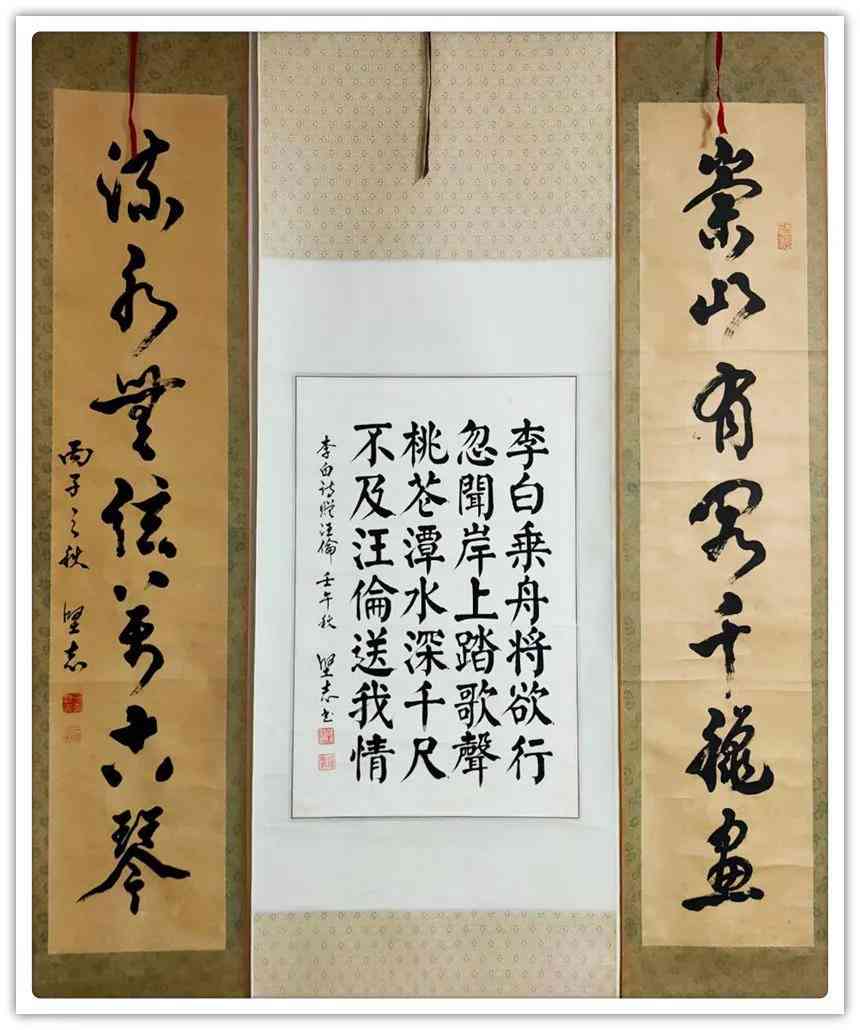 崇山有千穐畫
李白乘舟将欲行
忽聞岸上踏歌聲
桃花潭水深千尺
不及汪倫送我情
李白詩贈汪倫 壬午秋 堅志书
流水無弦萬古琴
丙子之秋 堅志